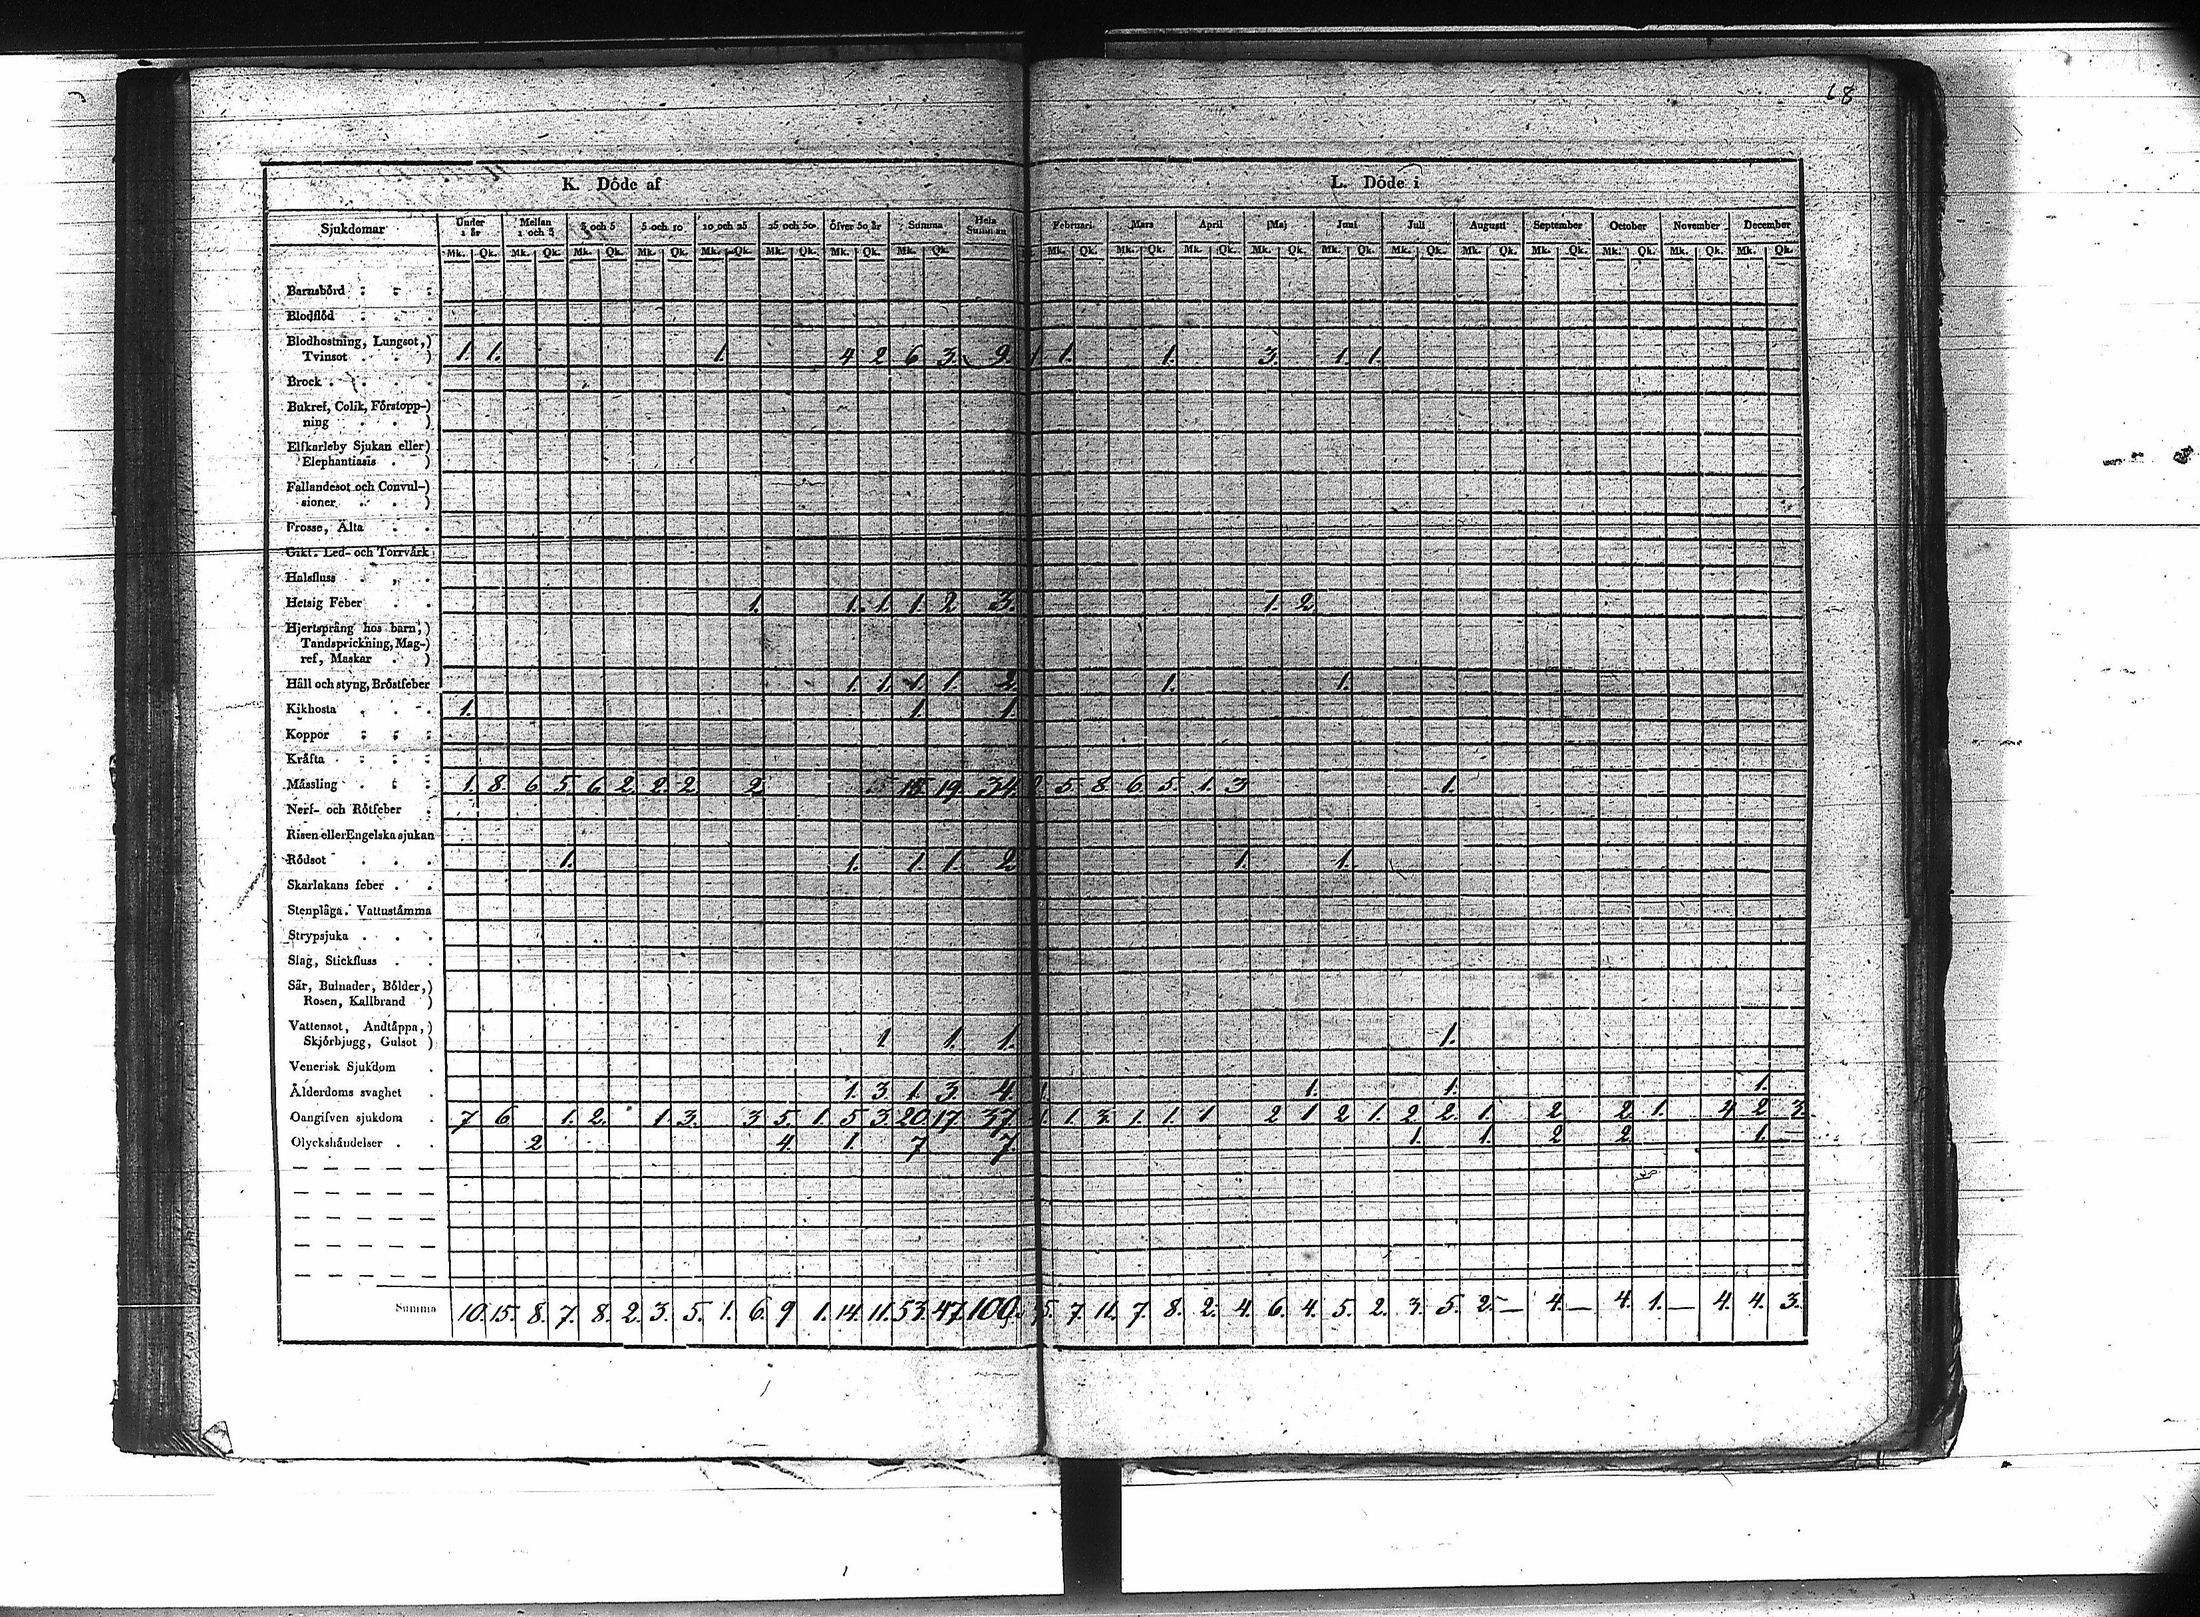 68
K. Döde af L. Döde i
Sjukdomar Under 1 år Mellan 1 och 3 3 och 5 5 och 10 10 och 25 25 och 50 öfver 50 år Summa Hela Summan Februari Mars April Maj Juni Juli Augusti September October November December
Mk. Qk. Mk. Qk. Mk. Qk. Mk. Qk. Mk. Qk. Mk. Qk. Mk. Qk. Mk. Qk. Mk. Qk. Mk. Qk. Mk. Qk. Mk. Qk. Mk. Qk. Mk. Qk. Mk. Qk. Mk. Qk. Mk. Qk. Mk. Qk. Mk. Qk.
Barnsbörd
Blodflöd
Blodhostning, Lungsot,)
Tvinsot . . ) 1. 1. 1. 4 2 6 3. 9. 1. 1. 1. 3. 1. 1.
Brock . . . .
Bukref, Colik, Förstopp-)
ning . . )
Elfkarleby Sjukan eller)
Elephantiasis . )
Fallandesot och Convul-)
sioner . . )
Frosse, Älta . .
Gikt. Led- och Torrvärk
Halsfluss . . .
Hetsig Feber . . 1. 1. 1. 1. 2 3. 1. 2
Hjertsprång hos barn,)
Tandsprickning, Mag-)
ref, Maskar . )
Håll och styng, Bröstfeber 1. 1. 1. 1. 2. 1. 1.
Kikhosta . . . 1. 1. 1.
Koppor
Kräfta
Mässling 1. 8. 6 5 6 2 2. 2 2 15 19 34. 2 5 8. 6 5. 1. 3 1.
Nerf- och Rötfeber
Risen eller Engelska sjukan
Rödsot . . . 1. 1. 1. 1. 2 1. 1.
Skarlakans feber . .
Stenplåga. Vattustämma
Strypsjuka . . .
Slag, Stickfluss . .
Sår, Bulnader, Bölder,)
Rosen, Kallbrand )
Vattensot, Andtäppa,)
Skjörbjugg, Gulsot ) 1 1. 1. 1.
Venerisk Sjukdom .
Ålderdoms svaghet . 1. 3. 1. 3. 4. 1. 1. 1. 1.
Oangifven sjukdom . 7 6 1. 2. 1. 3. 3 5. 1. 5 3. 20. 17 37. 1. 1. 3. 1. 1. 1 2 1 2 1. 2 2. 1. 2 2 1. 4 2 3
Olyckshändelser . . 2 4. 1. 7 7. 1. 1. 2 2 1.
Summa 10. 15. 8. 7. 8. 2. 3. 5. 1. 6. 9 1. 14. 11. 53. 47. 100. 5. 7. 11. 7. 8. 2. 4. 6. 4. 5. 2. 3. 5. 2. — 4. — 4. 1. — 4. 4. 3.